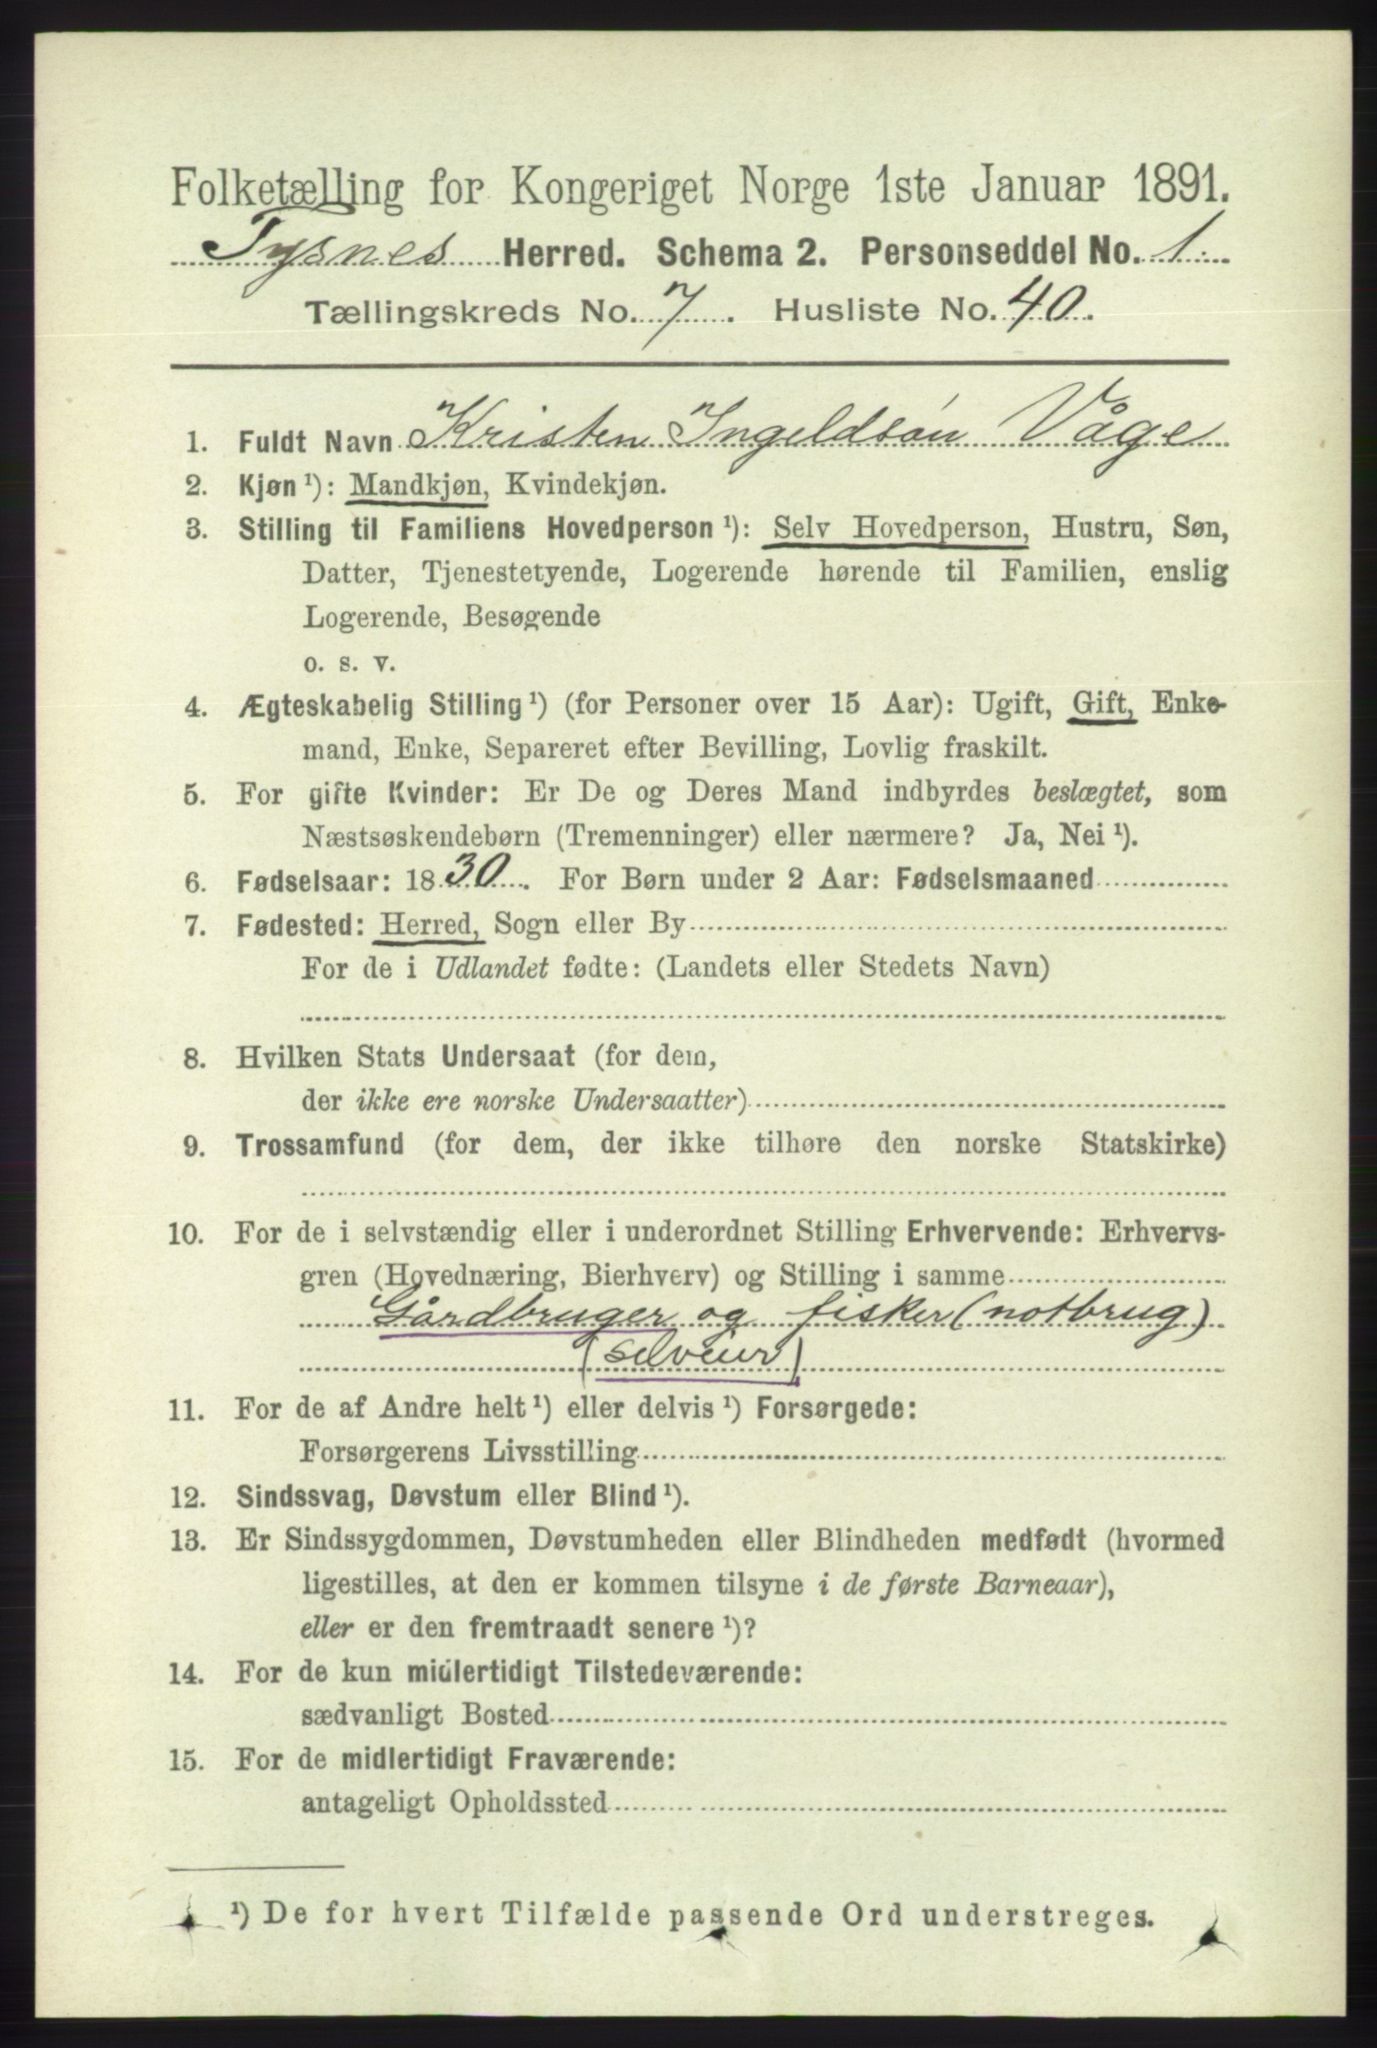 Folketælling for Kongeriget Norge 1ste Januar 1891.
Tysnes Herred. Schema 2. Personseddel No. 1.
Tællingskreds No. 7. Husliste No. 40.
1. Fuldt Navn Kristen Ingeldsøn Våge
2. Kjøn ¹): Mandkjøn, Kvindekjøn.
3. Stilling til Familiens Hovedperson ¹): Selv Hovedperson, Hustru, Søn,
Datter, Tjenestetyende, Logerende hørende til Familien, enslig
Logerende, Besøgende
o. s. v.
4. Ægteskabelig Stilling ¹) (for Personer over 15 Aar): Ugift, Gift, Enke-
mand, Enke, Separeret efter Bevilling, Lovlig fraskilt.
5. For gifte Kvinder: Er De og Deres Mand indbyrdes beslægtet, som
Næstsøskendebørn (Tremenninger) eller nærmere? Ja, Nei ¹).
6. Fødselsaar: 1830. For Børn under 2 Aar: Fødselsmaaned
7. Fødested: Herred, Sogn eller By
For de i Udlandet fødte: (Landets eller Stedets Navn)
8. Hvilken Stats Undersaat (for dem,
der ikke ere norske Undersaatter)
9. Trossamfund (for dem, der ikke tilhøre den norske Statskirke)
10. For de i selvstændig eller i underordnet Stilling Erhvervende: Erhvervs-
gren (Hovednæring, Bierhverv) og Stilling i samme
Gårdbruger og fisker (notbrug)
(selveier)
11. For de af Andre helt ¹) eller delvis ¹) Forsørgede:
Forsørgerens Livsstilling
12. Sindssvag, Døvstum eller Blind ¹).
13. Er Sindssygdommen, Døvstumheden eller Blindheden medfødt (hvormed
ligestilles, at den er kommen tilsyne i de første Barneaar),
eller er den fremtraadt senere ¹)?
14. For de kun midlertidigt Tilstedeværende:
sædvanligt Bosted
15. For de midlertidigt Fraværende:
antageligt Opholdssted
¹) De for hvert Tilfælde passende Ord understreges.